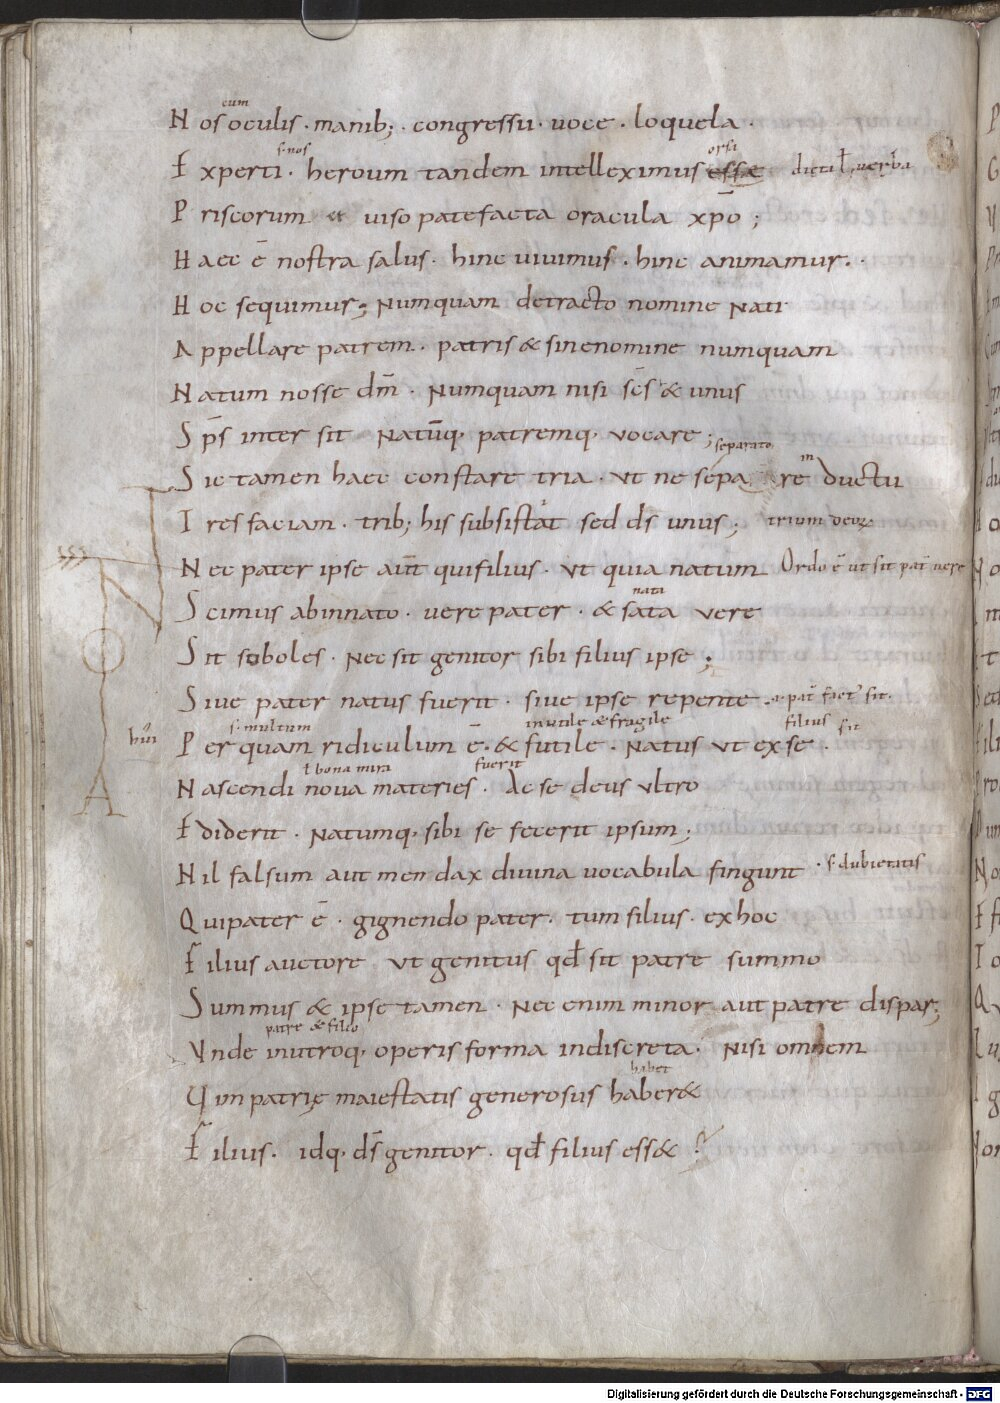 cum
Nos oculis · manib; · congressu · uoce · loquela ·
s· nos orsi
Experti · heroum tandem intelleximus essę dicta ł uerba
Priscorum et uiso patefacta oracula xp̄o ;
Haec ē nostra salus · hinc uiuimus · hinc animamur ·
Hoc sequimur ; Numquam detracto nomine Nati
Appellare patrem · patris & sine nomine numquam
Natum nosse dm̄ · Numquam nisi sc̄s & unus
Sp̄s inter sit Natūq· patremq· vocare ;
separato
in
Sic tamen haec constare tria · vt ne sepa re ductu
Tres faciam · trib; his subsistat sed ds unus ; trium deorum
Nec pater ipse aūt qui filius · vt quia natum Ordo ē ut sit pat̄ uere
nata
Scimus ab innato · uere pater · & sata vere
Sit soboles · Nec sit genitor sibi filius ipse ;
Siue pater natus fuerit · siue ipse repente pat̄ fact' sit·
s· multum inutile & fragile filius sit
Per quam ridiculum ē · & futile · Natus vt ex se ·
ł bona mira fuerit
Nascendi noua materies · Ac se deus vltro
Ediderit · Natumq· sibi se fecerit ipsum ;
Nil falsum aut mendax diuina uocabula fingunt · s· dubietatis
Qui pater ē · gignendo pater · tum filius · ex hoc
Filius auctore vt genitus qd̄ sit patre summo
Summus & ipse tamen · Nec enim minor aut patre dispar ;
patre & filio
Vnde in utroq· operis forma indiscreta · Nisi omnem
habet
Vim patrię maiestatis generosus haber&
Filius · idq· ds̄ genitor · qd̄ filius ess& ?
Digitalisierung gefördert durch die Deutsche Forschungsgemeinschaft - DFG